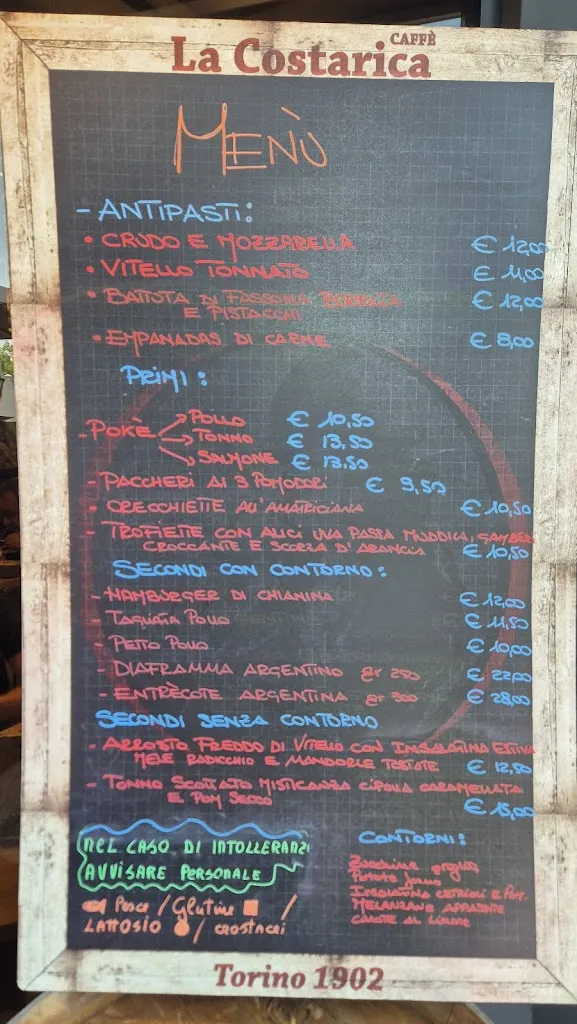 CAFFÈ
La Costarica
MENÙ
- ANTIPASTI:
• CRUDO E MOZZARELLA € 12,00
• VITELLO TONNATO € 11,00
• BATTUTA DI FASSONA BURRATA € 12,00
E PISTACCHI
• EMPANADAS DI CARNE € 8,00
PRIMI:
- POKÈ → POLLO € 10,50
→ TONNO € 13.50
→ SALMONE € 13.50
- PACCHERI AI 3 POMODORI € 9,50
- ORECCHIETTE ALL'AMATRICIANA € 10,50
- TROFIETTE CON ALICI UVA PASSA MUDDICA, GAMBERI
CROCCANTE E SCORZA D'ARANCIA € 10,50
SECONDI CON CONTORNO:
- HAMBURGER DI CHIANINA € 12,00
- TAGLIATA POLLO € 11,50
- PETTO POLLO € 10,00
- DIAFRAMMA ARGENTINO gr 250 € 22,00
- ENTRÈCOTE ARGENTINA gr 300 € 28,00
SECONDI SENZA CONTORNO
- ARROSTO FREDDO DI VITELLO CON INSALATINA ESTIVA
MELE RADICCHIO E MANDORLE TOSTATE € 12,50
- TONNO SCOTTATO MISTICANZA CIPOLLA CARAMELLATA
E POM SECCO € 15,00
NEL CASO DI INTOLLERANZE
AVVISARE PERSONALE
Pesce / Glutine /
LATTOSIO / CROSTACEI
CONTORNI:
Zucchine
Patate forno
INSALATINA CETRIOLI E POM.
MELANZANE
CAROTE AL LIMONE
Torino 1902